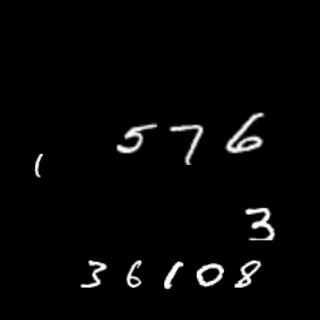 576
(
3
36108